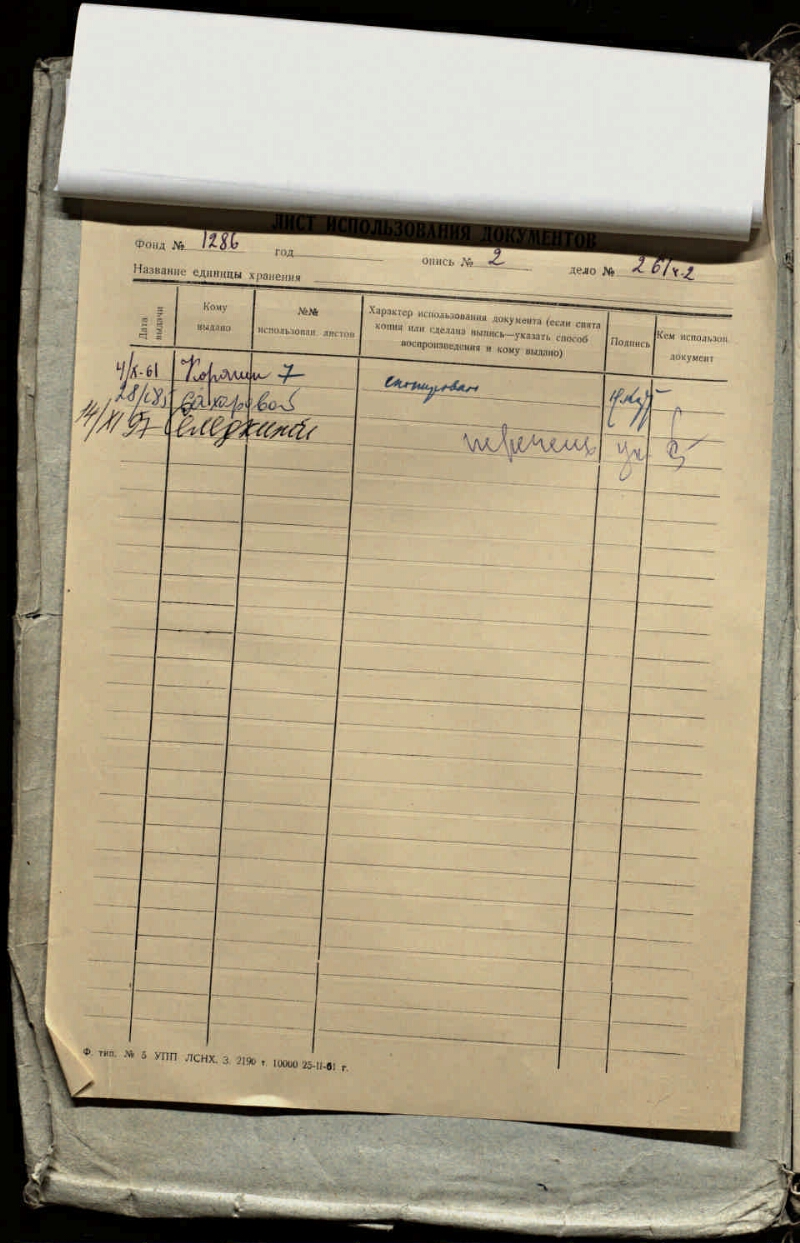 ЛИСТ ИСПОЛЬЗОВАНИЯ ДОКУМЕНТОВ
Фонд № 1286 год опись № 2 дело № 261ч.2
Название единицы хранения
Дата выдачи
Кому выдано
№№ использован. листов
Характер использования документа (если снята копия или сделана выпись—указать способ воспроизведения и кому выдано)
Подпись
Кем использон документ
4/X-61 7
Захаровой
14/XI 97 Селедкиной перечень
Ф. тип. № 5 УПП ЛСНХ. З. 2190 т. 10000 25-II-61 г.